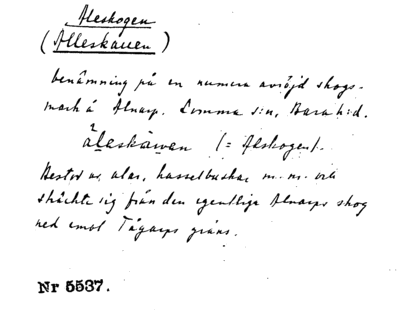 Aleskogen
(Alleskauen)
benämning på en numera avröjd skogs-
mark å Alnarp. Lomma s:n, Bara h:d.
åleskàwen (= Aleskogen).
Bestod av alar, hasselbuskar m. m. och
sträckte sig från den egentliga Alnarps skog
ned emot Tågarps gräns.
Nr 5537.